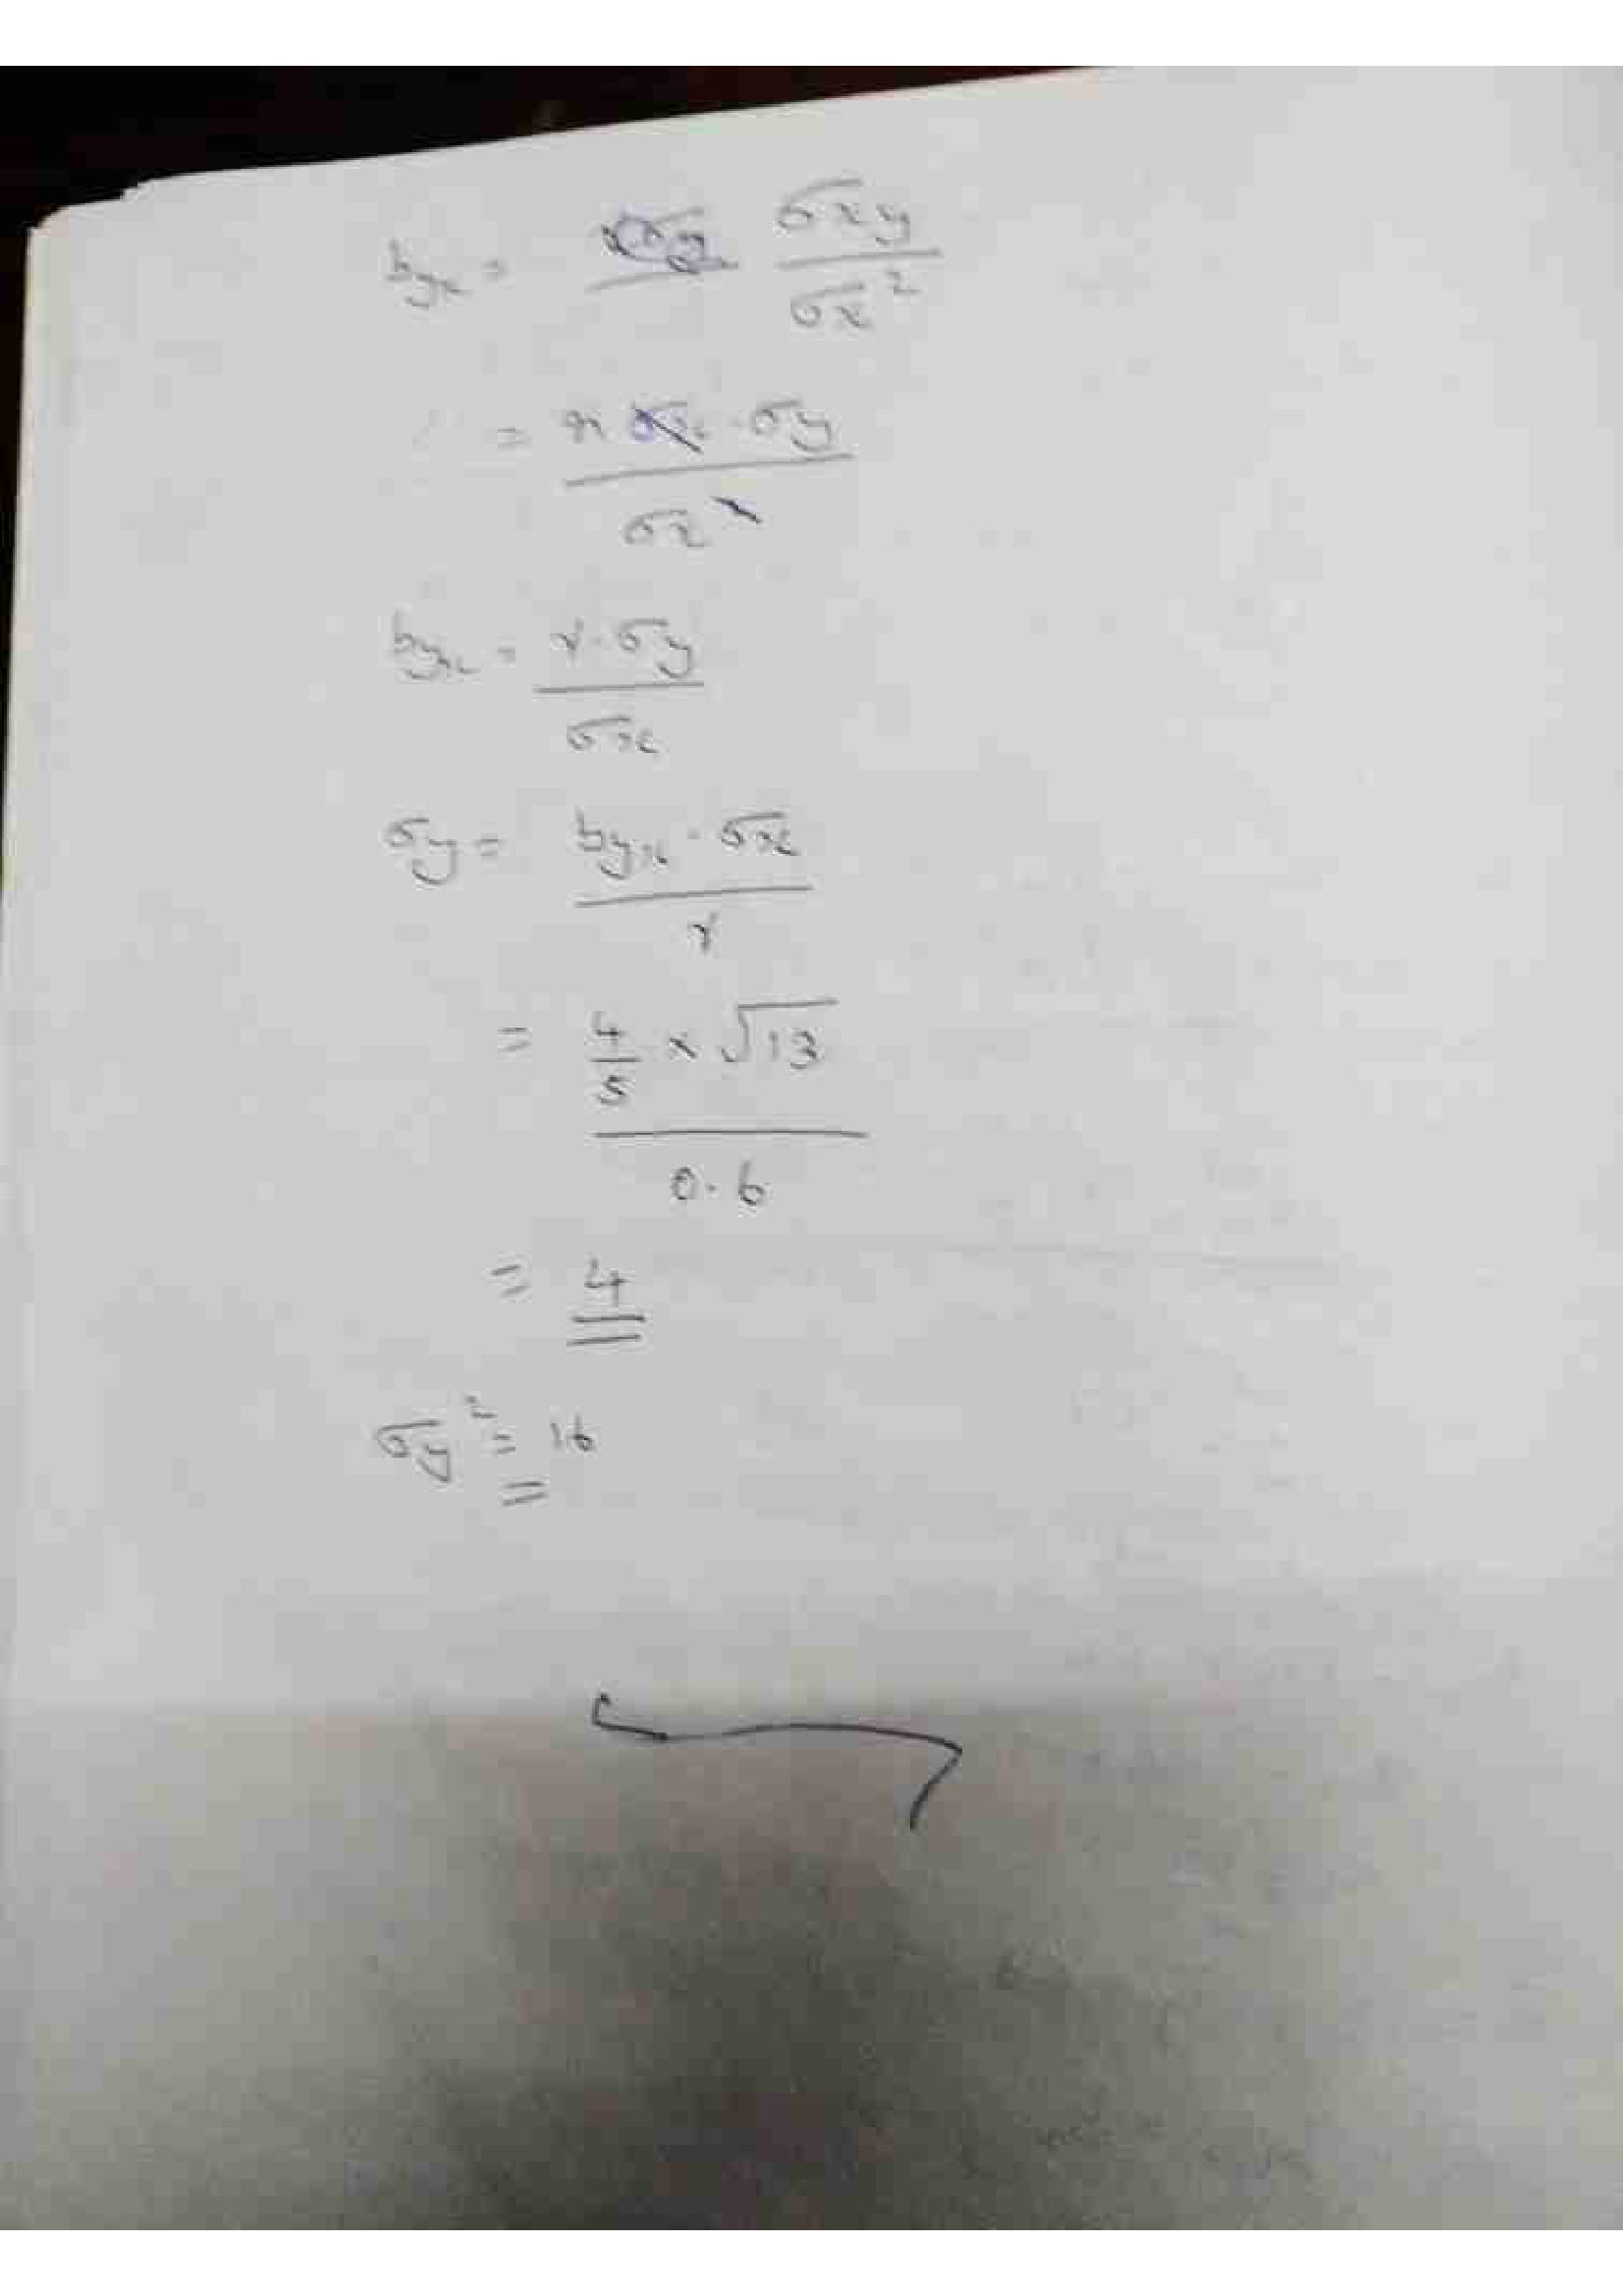 byx = σxy / σx²
= r σx · σy / σx²
byx = r · σy / σx
σy = byx · σx / r
= 4/5 × √13 / 0.6
= 4
σy² = 16